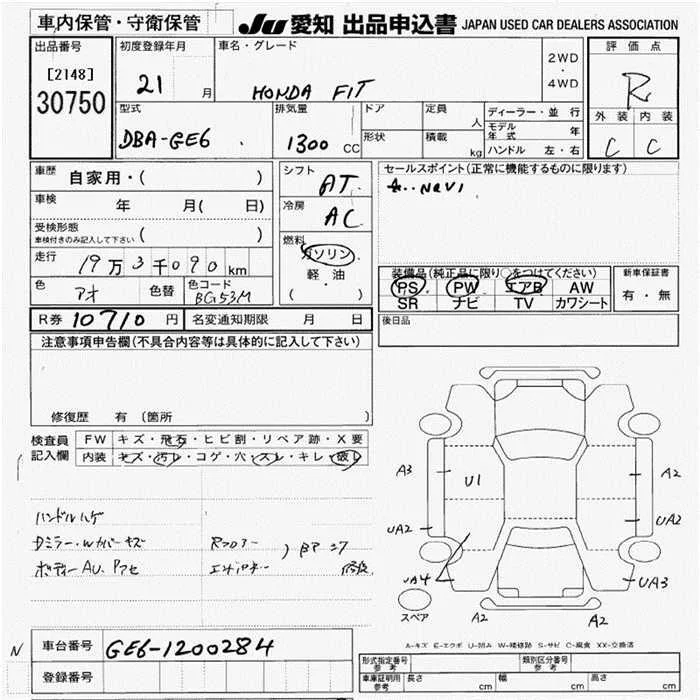 車内保管・守衛保管
JU 愛知 出品申込書 JAPAN USED CAR DEALERS ASSOCIATION
出品番号
[2148]
30750
初度登録年月
21 月
車名・グレード
HONDA FIT
2WD
・
4WD
評価点
R
外装 内装
C C
型式
DBA-GE6
排気量
1300 CC
ドア
形状
定員 人
積載 kg
ディーラー・並行
モデル年式 年
ハンドル 左・右
車歴 自家用・( )
車検 年 月( 日)
受検形態
車検付きのみ記入して下さい ( )
走行 19万3千090km
色 アオ 色替 色コード
BG53M
シフト
AT
冷房
AC
燃料
ガソリン
軽・油
( )
セールスポイント(正常に機能するものに限ります)
NAVI
装備品(純正品に限り○をつけてください)
PS PW エアB AW
SR ナビ TV カワシート
新車保証書
有・無
R券 10710 円 名変通知期限 月 日
後日品
注意事項申告欄(不具合内容等は具体的に記入して下さい)
修復歴 有 (箇所 )
検査員
記入欄
FW キズ・飛石・ヒビ割・リペア跡・X要
内装 キズ・汚レ・コゲ・穴・スレ・キレ・破レ
ハンドルハゲ
Dミラー・Wカバーキズ
Rフロアー
ボディーAU、
A3
U1
A2
UA2
UA2
UA4
UA3
スペア
A2
A2
A-キズ E-エクボ U-凹み W-補修跡 S-サビ C-腐食 XX-交換済
N
車台番号 GE6-1200284
登録番号
形式指定番号
参考
類別区分番号
参考
車庫証明用
参考
長さ cm 幅 cm 高さ cm